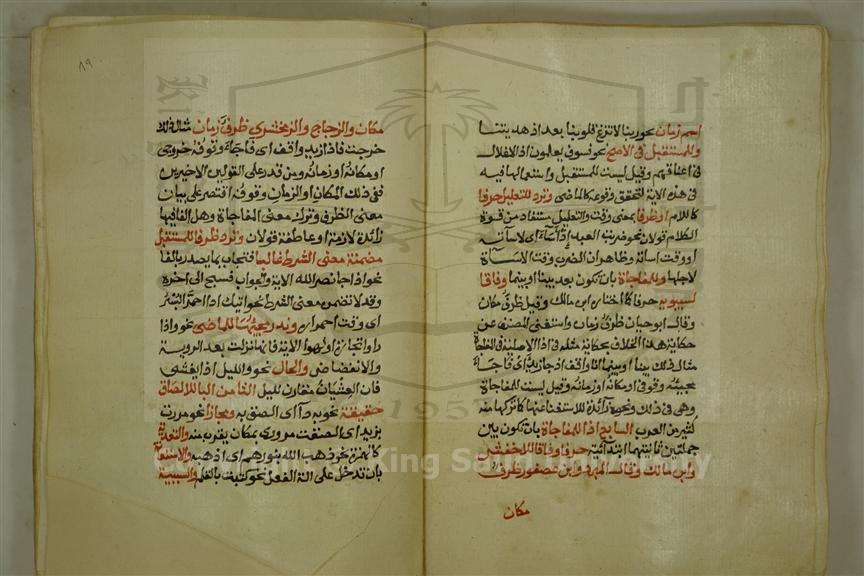 اسم زمان نحو ربنا لا تزغ قلوبنا بعد اذ هديتنا
وللمستقبل في الاصح نحو فسوف يعلمون اذ الاغلال
في اعناقهم وقيل ليست للمستقبل واستعمالها فيه
في هذه الاية لتحقق وقوعه كالماضي وترد للتعليل حرفا
كاللام او ظرفا بمعنى وقت والتعليل مستفاد من قوة
الكلام قولان نحو ضربت العبد اذ اساء اي لاساته
او وقت اساته وظاهر ان الضرب وقت الاساة
لاجلها وللمفاجاة بان تكون بعد بينا او بينما وفاقا
لسيبويه حرفا كما اختاره ابن مالك وقيل ظرف مكان
وقال ابو حيان ظرف زمان واستغنى المصنف عن
حكاية هذا الخلاف بحكاية مثله في اذا الاصلية في المفاجاة
مثال ذلك بينا او بينما انا واقف اذ جا زيد اي فاجا
مجيئه وقوفي او مكانه او زمانه وقيل ليست للمفاجاة
وهي في ذلك ونحوه زائدة للاستغناء عنها كما تركها منه
كثير من العرب السابع اذا للمفاجاة بان تكون بين
جملتين ثانيتهما ابتدائية حرفا وفاقا للاخفش
وابن مالك وقال المبرد وابن عصفور ظرف
مكان
٨٩
مكان والزجاج والزمخشري ظرف زمان مثال ذلك
خرجت فاذا زيد واقف اي فاجا وقوفه خروجي
او مكانه او زمانه ومن قدر على القولين الاخيرين
ففي ذلك المكان او الزمان وقوفه اقتصر على بيان
معنى الظرف وترك معنى المفاجاة وهل الفا فيها
زائدة لازمة او عاطفة قولان وترد ظرفا للمستقبل
مضمنة معنى الشرط غالبا فتجاب بما يصدر بالفا
نحو اذا جا نصر الله الاية والجواب فسبح الى اخره
وقد لا تضمن معنى الشرط نحو اتيك اذا احمر البسر
اي وقت احمراره وندر مجيئها للماضي نحو واذا
راوا تجارة او لهوا الاية فانها نزلت بعد الروية
والانفضاض والحال نحو والليل اذا يغشى
فان الغشيان مقارن لليل الثامن الباء للالصاق
حقيقة نحو به داء اي الصق به ومجازا نحو مررت
بزيد اي الصقت مروري بمكان يقرب منه والتعدية
كالهمزة نحو ذهب الله بنورهم اي اذهبه والاستعانة
بان تدخل على الة الفعل نحو كتبت بالقلم والسببية
Copyright © King Saud University
1957